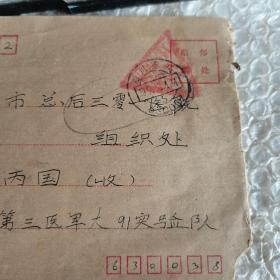 2
邮
处
市总后三零一医院
组织处
丙国（收）
第三医军大91实习队
630038